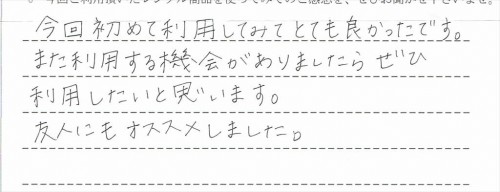 今回初めて利用してみてとても良かったです。
また利用する機会がありましたらぜひ
利用したいと思います。
友人にもオススメしました。